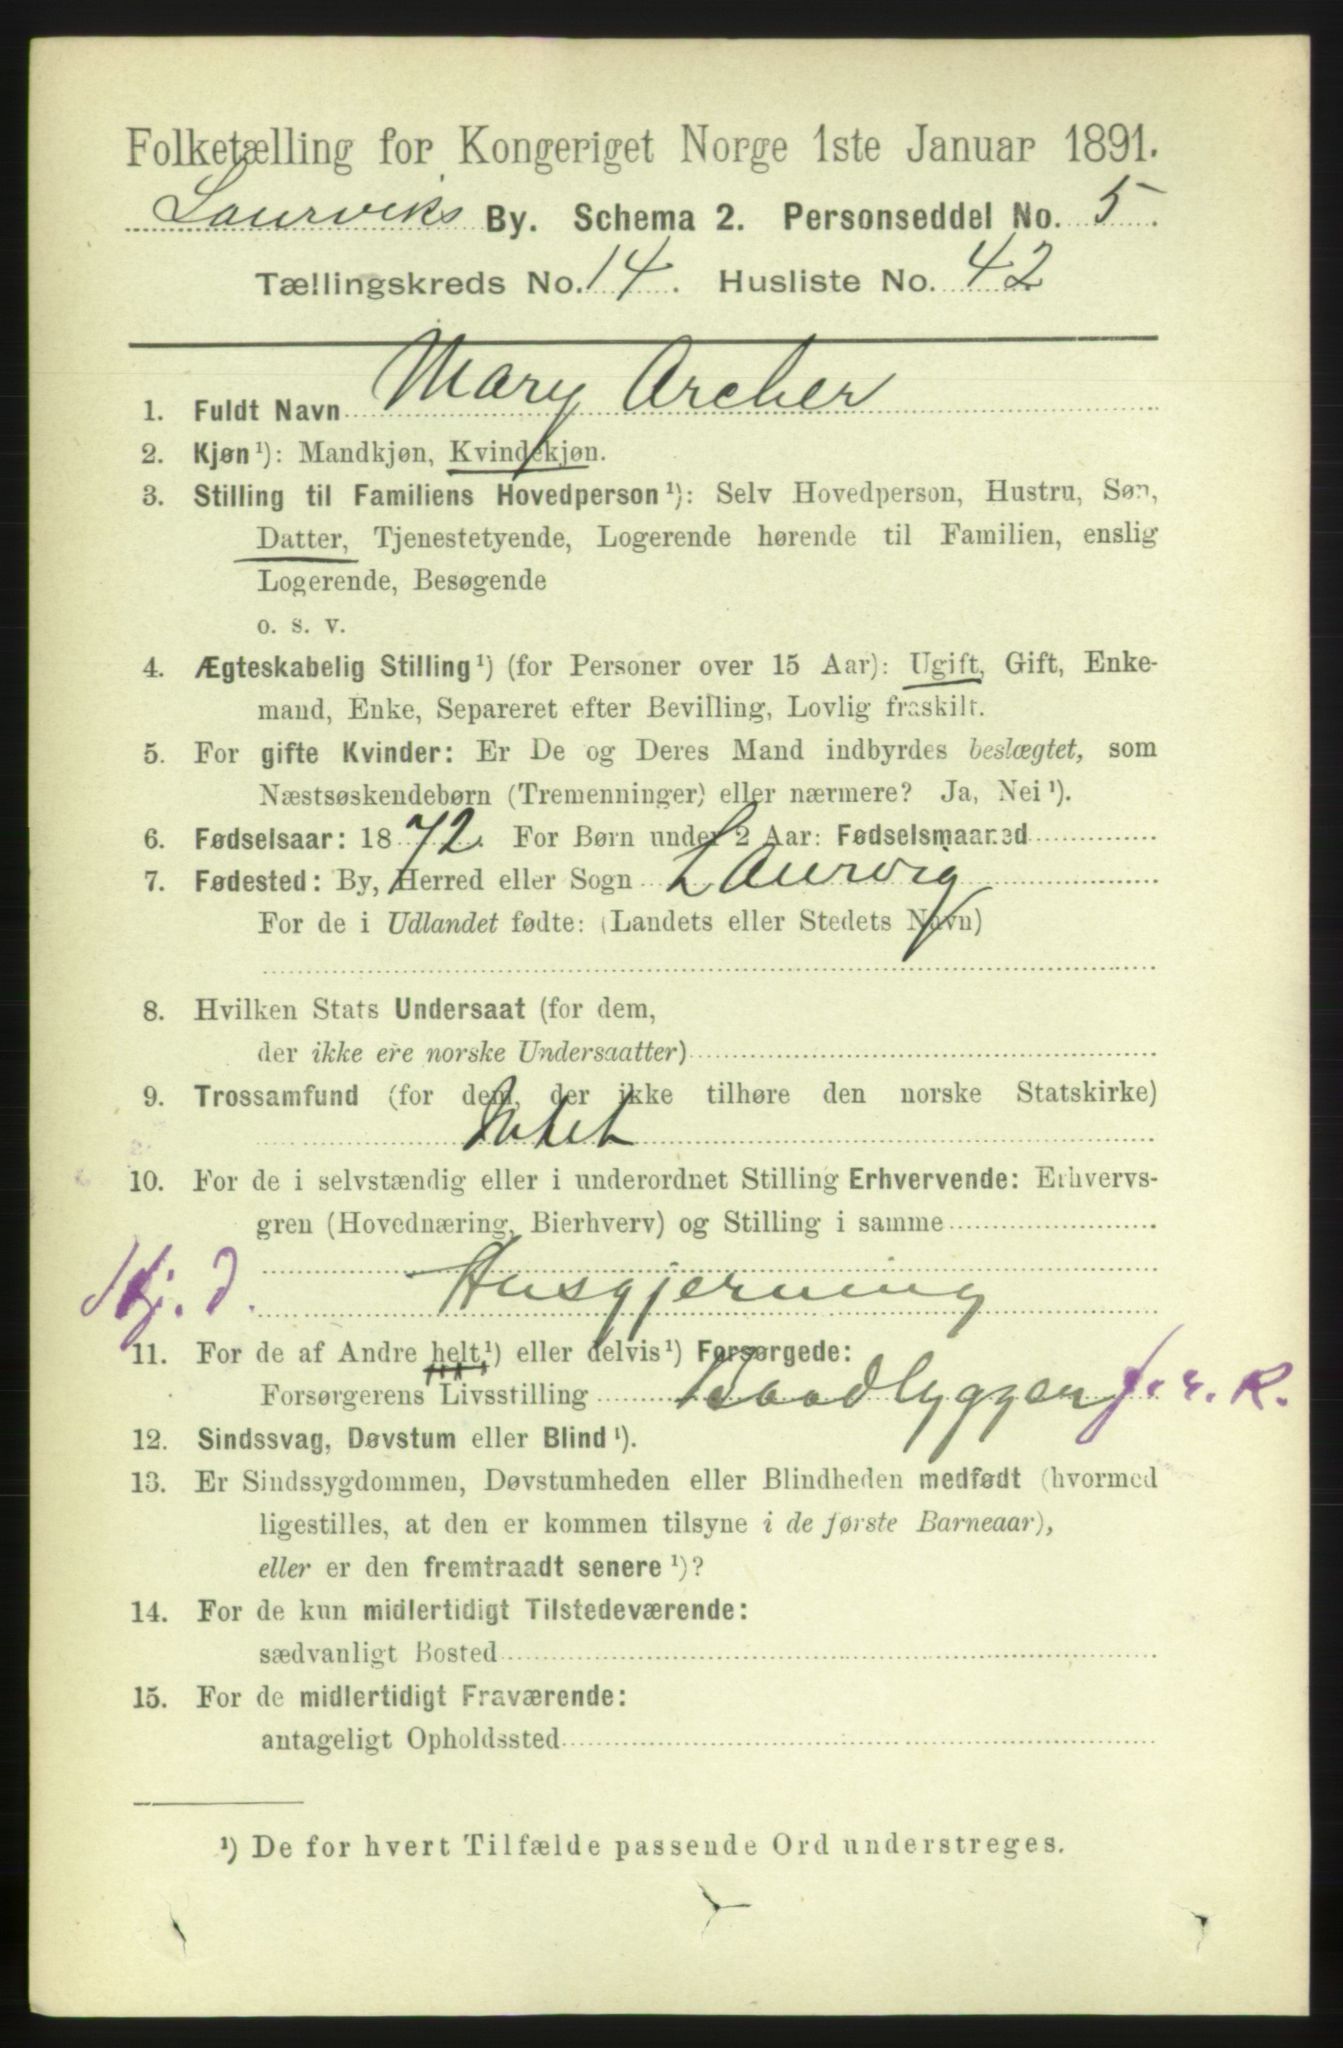 Folketælling for Kongeriget Norge 1ste Januar 1891.
Laurviks By. Schema 2. Personseddel No. 5.
Tællingskreds No. 14. Husliste No. 42
1. Fuldt Navn Mary Archer
2. Kjøn ¹): Mandkjøn, Kvindekjøn.
3. Stilling til Familiens Hovedperson ¹): Selv Hovedperson, Hustru, Søn,
Datter, Tjenestetyende, Logerende hørende til Familien, enslig
Logerende, Besøgende
o. s. v.
4. Ægteskabelig Stilling ¹) (for Personer over 15 Aar): Ugift, Gift, Enke-
mand, Enke, Separeret efter Bevilling, Lovlig fraskilt.
5. For gifte Kvinder: Er De og Deres Mand indbyrdes beslægtet, som
Næstsøskendebørn (Tremenninger) eller nærmere? Ja, Nei ¹).
6. Fødselsaar: 1872. For Børn under 2 Aar: Fødselsmaaned
7. Fødested: By, Herred eller Sogn Laurvig
For de i Udlandet fødte: (Landets eller Stedets Navn)
8. Hvilken Stats Undersaat (for dem,
der ikke ere norske Undersaatter)
9. Trossamfund (for dem, der ikke tilhøre den norske Statskirke)
Intet
10. For de i selvstændig eller i underordnet Stilling Erhvervende: Erhvervs-
gren (Hovednæring, Bierhverv) og Stilling i samme
Hj. d. Husgjerning
11. For de af Andre helt ¹) eller delvis ¹) Forsørgede:
Forsørgerens Livsstilling Baadbygger f. r. k.
12. Sindssvag, Døvstum eller Blind ¹).
13. Er Sindssygdommen, Døvstumheden eller Blindheden medfødt (hvormed
ligestilles, at den er kommen tilsyne i de første Barneaar),
eller er den fremtraadt senere ¹)?
14. For de kun midlertidigt Tilstedeværende:
sædvanligt Bosted
15. For de midlertidigt Fraværende:
antageligt Opholdssted
¹) De for hvert Tilfælde passende Ord understreges.